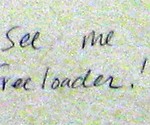 See me
Freeloader!